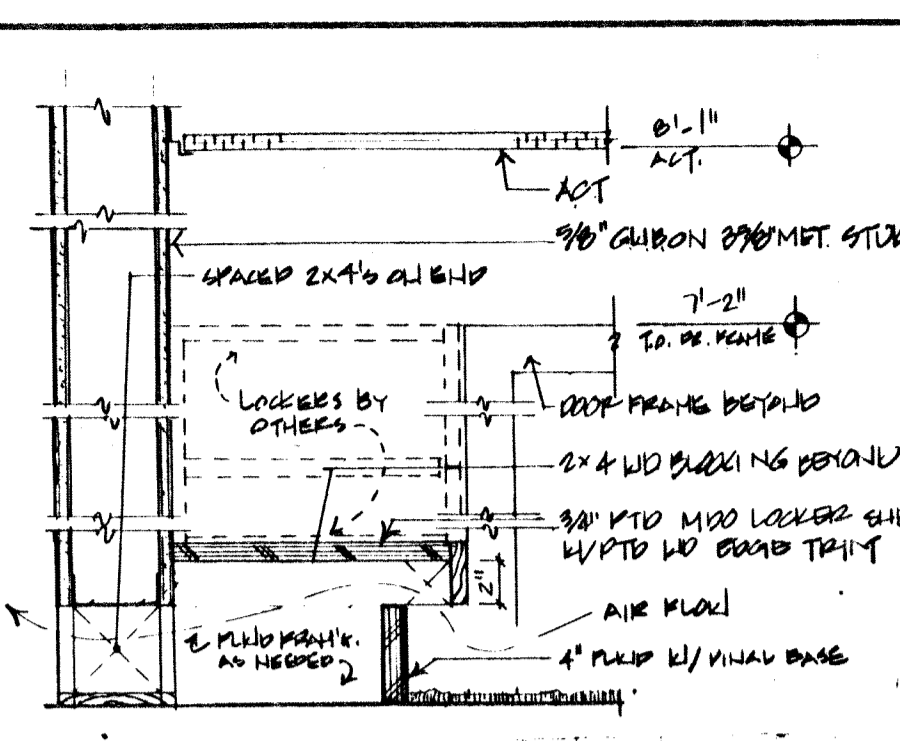 8'-1"
ACT.
ACT
5/8" GWB ON 3 5/8" MET. STUD
SPACED 2x4'S ON END
7'-2"
T.O. DR. FRAME
LOCKERS BY
OTHERS
DOOR FRAME BEYOND
2x4 WD BLOCKING BEYOND
3/4" PTD MDO LOCKER
W/PTD WD EDGE TRIM
2"
AIR FLOW
PLWD FRAM'G.
AS NEEDED
4" PLWD W/ VINAL BASE